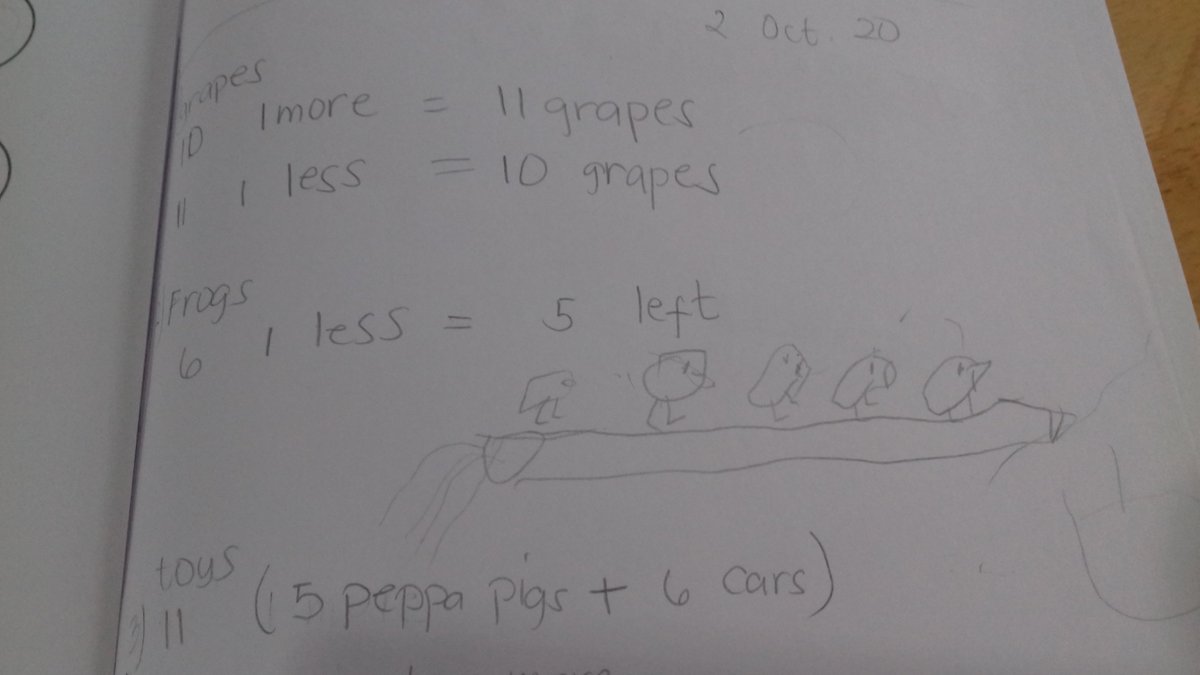 2 Oct. 20
grapes
10 1 more = 11 grapes
11 1 less = 10 grapes
Frogs
6 1 less = 5 left
toys
3) 11 (5 peppa pigs + 6 cars)